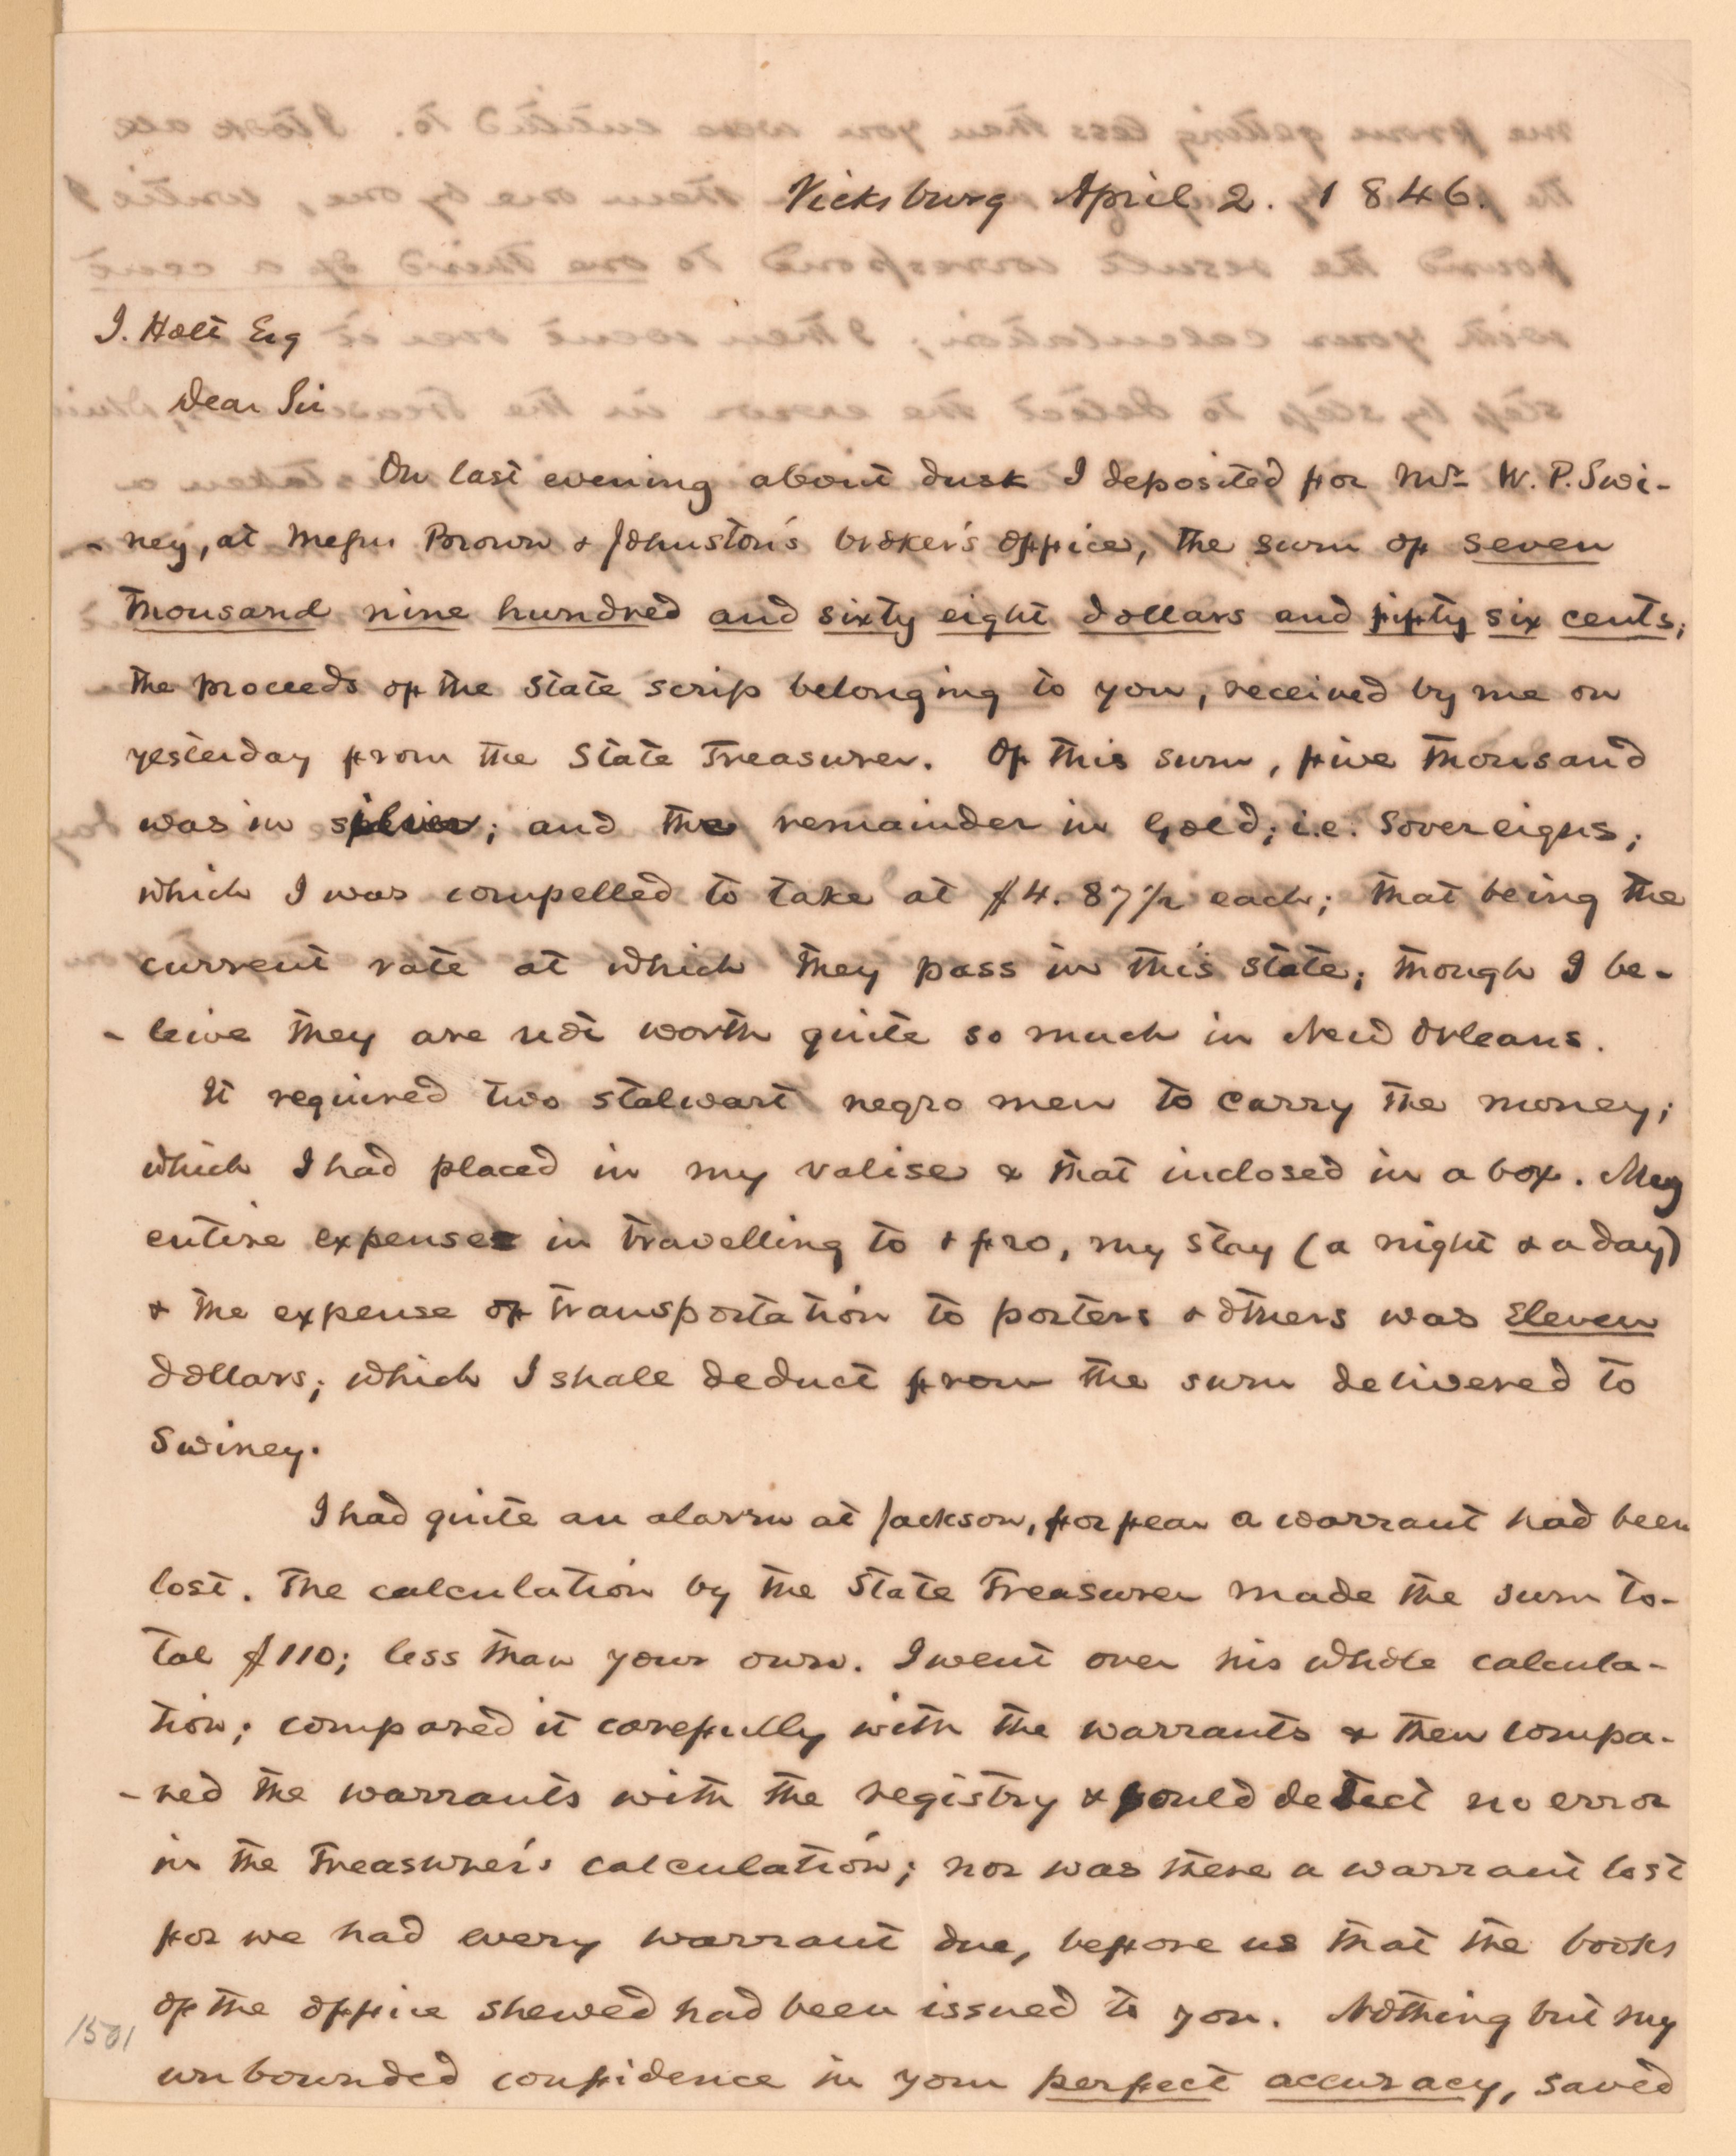 Vicksburg April 2. 1846.
J. Holt Esq
Dear Sir
On last evening about dusk I deposited for Mr. W. P. Swi-
- ney, at Messrs Brown & Johnston's broker's office, the sum of seven
thousand nine hundred and sixty eight dollars and fifty six cents;
the proceeds of the State scrip belonging to you, received by me on
yesterday from the State Treasurer. Of this sum, five thousand
was in silver; and the remainder in Gold; i.e. Sovereigns;
which I was compelled to take at $4.87½ each; that being the
current rate at which they pass in this state; though I be-
- leive they are not worth quite so much in New Orleans.
It required two stalwart negro men to carry the money;
which I had placed in my valise & that inclosed in a box. My
entire expenses in travelling to & fro, my stay (a night & a day)
& the expense of transportation to porters & others was Eleven
dollars; which I shall deduct from the sum delivered to
Swiney.
I had quite an alarm at Jackson, for fear a warrant had been
lost. The calculation by the State Treasurer made the sum to-
tal $110; less than your own. I went over his whole calcula-
tion; compared it carefully with the warrants & then compa-
- red the warrants with the registry & could detect no error
in the Treasurer's calculation; nor was there a warrant lost
for we had every warrant due, before us that the books
of the office shewed had been issued to you. Nothing but my
unbounded confidence in your perfect accuracy, saved
1501